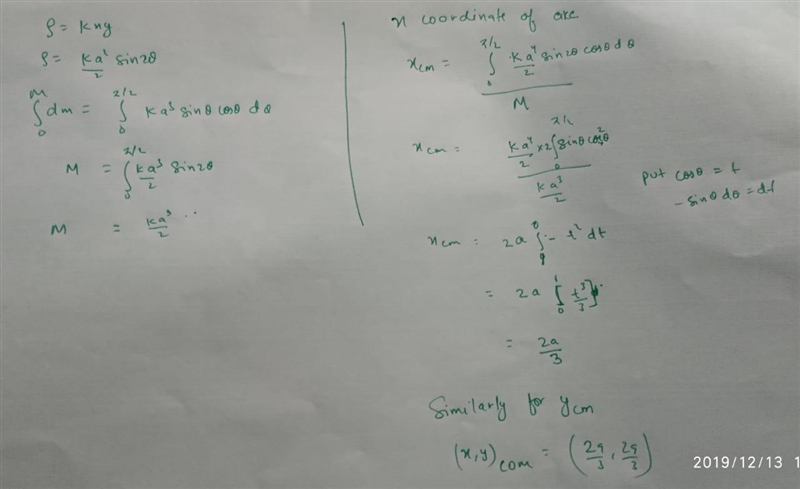 ρ = kxy
ρ = ka²/2 sin2θ
∫₀ᴹ dm = ∫₀^{π/2} ka³ sinθ cosθ dθ
M = ∫₀^{π/2} ka³/2 sin2θ
M = ka³/2 ..
x coordinate of arc
x_cm = ∫₀^{π/2} ka⁴/2 sin2θ cosθ dθ / M
x_cm = ka⁴/2 × 2 ∫₀^{π/2} sinθ cos²θ / ka³/2
put cosθ = t
- sinθ dθ = dt
x_cm = 2a ∫₁⁰ - t² dt
= 2a ∫₀¹ t³/3]
= 2a/3
Similarly for y_cm
(x, y)_com = (2a/3, 2a/3)
2019/12/13 1